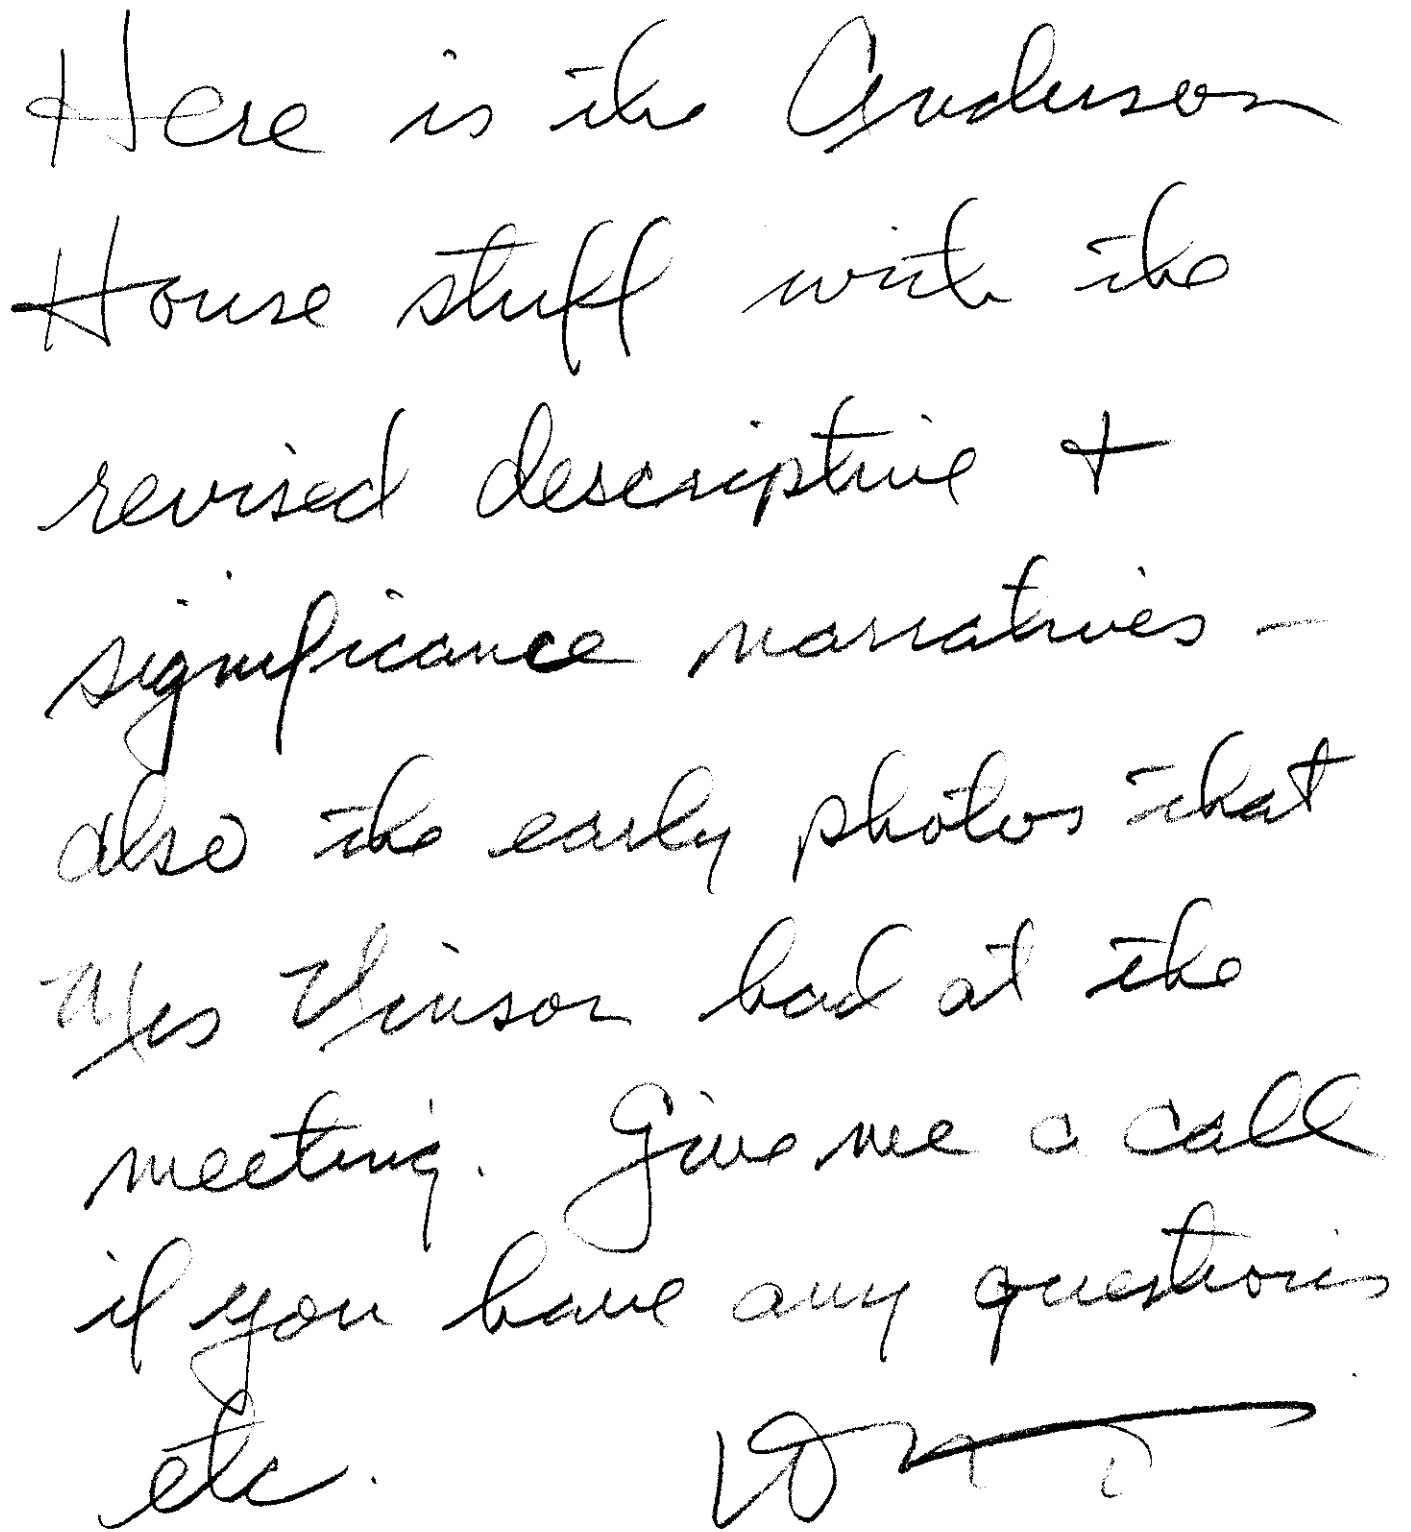 Here is the Anderson
House stuff with the
revised descriptive +
significance narratives –
also the early photos that
Mrs Vinson had at the
meeting. Give me a call
if you have any questions
etc.